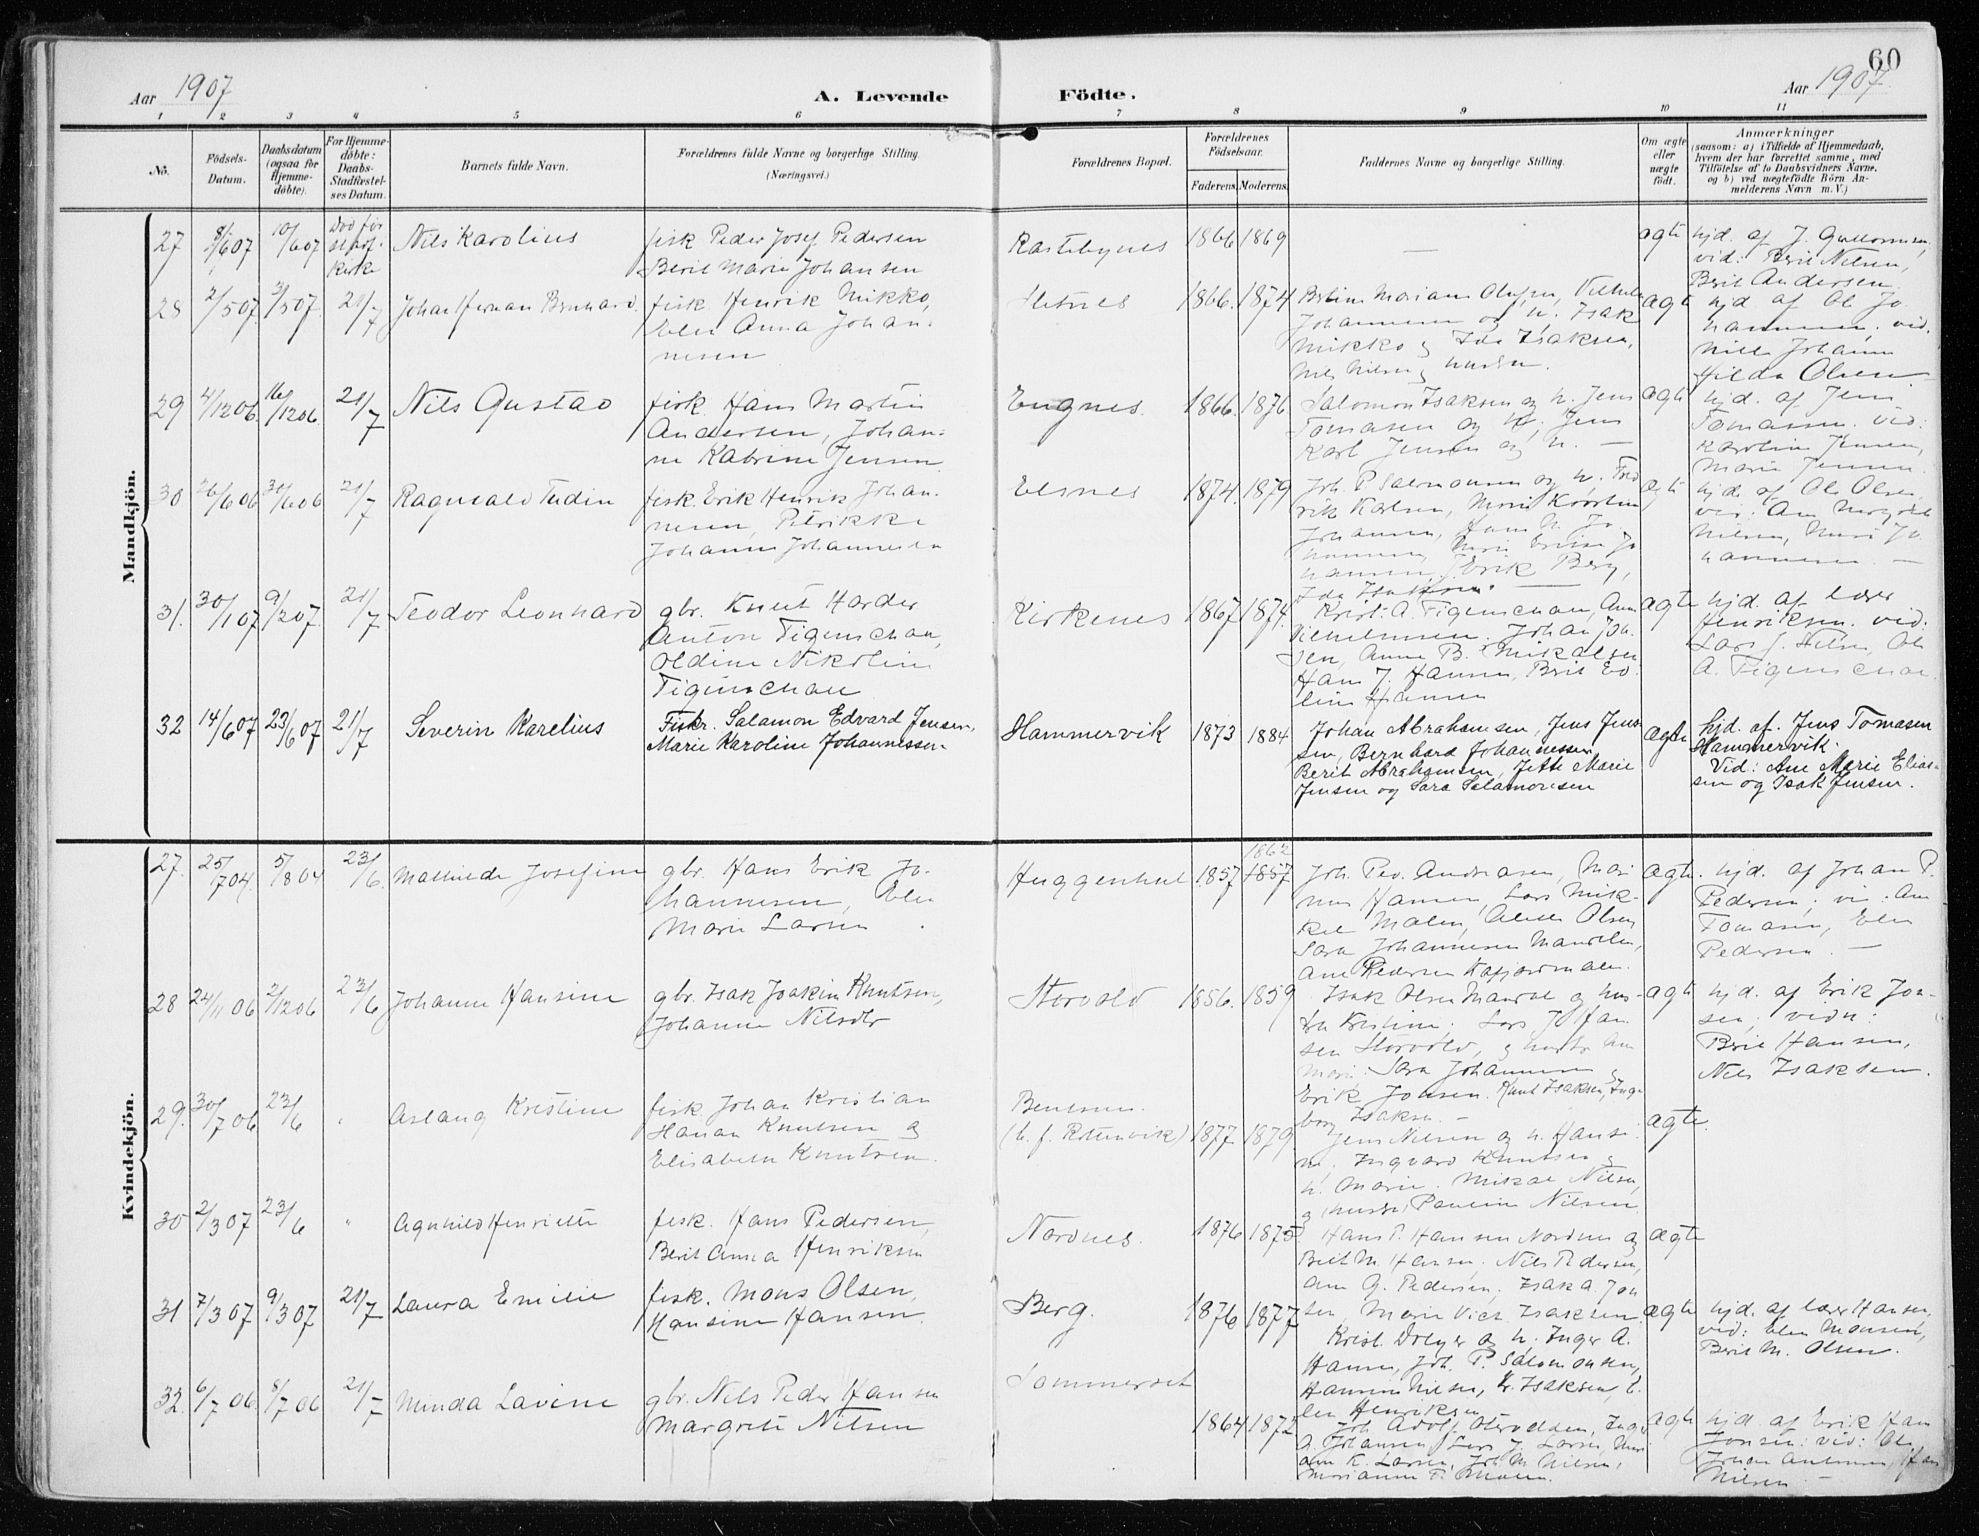 60
Aar 1907
A. Levende Födte.
Aar 1907.
1 2 3 4 5 6 7 8 9 10 11
No.
Födsels-
Datum.
Daabsdatum
(ogsaa for
Hjemme-
döbte).
For Hjemme-
döbte:
Daabs-
Stadfæstel-
ses Datum.
Barnets fulde Navn.
Forældrenes fulde Navne og borgerlige Stilling.
(Næringsvei.)
Forældrenes Bopæl.
Forældrenes
Födselsaar.
Faderens. Moderens.
Faddernes Navne og borgerlige Stilling.
Om ægte
eller
uægte
födt.
Anmærkninger
(saasom: a) i Tilfælde af Hjemmedaab,
hvem der har forrettet samme, med
Tilföielse af to Daabsvidners Navne,
og b) ved uægtefödte Börn An-
melderens Navn m. V.)
Mandkjön.
27 8/607 10/607 Död för
stadf.
kirke
Nils Karolius
fisk Peder Josef Pedersen
Berit Marie Johansen
1866 1869 — ægte
hjd. af J.
vid: Berit Nilsen,
Berit Andersen.
28 2/507. 3/507. 21/7 Johan Herman Bernhard.
fisk Henrik Mikko,
Elen Anna Johan-
nesen
1866. 1874
Johannesen og h. Isak
Mikko og Ida Isaksen,
Nils Nilsen og hustru.
ægte
hjd af Ol. Jo
hannesen. vid.
Nille Johanne
Hilda Olsen.
29 4/1206. 16/1206. 21/7 Nils Gustav
fisk. Hans Martin
Andersen, Johan-
ne Katrine Jensen
Engnes. 1866. 1876
Salomon Isaksen og h. Jens
Tomasen og h. Jens
Karl Jensen og h. —
ægte
hjd. af Jens
Tomasen. vid:
Karoline Jensen,
Marie Jensen.
30 26/606 30/606 21/7 Ragnvald Tudin
fisk. Erik Henrik Johan-
nesen, Petrikke
Johanne Johannesen
Elsnes 1874. 1879
Joh. P Salomonsen og h. Fred
rik Karlsen,
Johannesen, Hans N. Jo
hannesen,
hansen, Erik Berg,
Ida Isaksen.
ægte
hjd. af Ole Olsen
vid: Ane
Nilsen, Marie Jo
hannesen —
31. 30/107 9/207. 21/7 Teodor Leonhard
gbr. Knut Harder
Anton Figenschau,
Oldine Nikoline
Figenschau
Kirkenes 1867 1874.
Krist. A. Figenschau, Ane
Vilhelmsen. Johan Joh.
sen, Anne B. Mikalsen
Hans J. Hansen, Berit Ed.
line Hansen
ægte
hjd. af lærer
Henriksen. vid:
Lars J. Nilsen, Ole
A. Figenschau.
32 14/607 23/607 21/7 Severin Karelius
Fiskr. Salamon Edvard Jensen,
Marie Karoline Johannessen
Hammervik 1873 1884
Johan Abrahamsen, Jens Jens-
sen, Bernhard Johannessen
Berit Abrahamsen, Jette Marie
Jensen og Sara Salamonsen
ægte
hjd. af. Jens Tomasen
Hammervik.
Vid: Ane Marie Elias-
sen og Isak Jensen.
Kvindekjön.
27. 25/704. 5/804 23/6. Mathilde Josefine
gbr. Hans Erik Jo-
hannesen, Elen
Marie Larsen
1857 1862
1857
Joh. Ped. Andreasen,
Hansen, Lars Mik-
kel Malen, Aleth Olsen
Sara Johannesen Mandalen,
Ane Pedersen Kafjordmalen.
ægte.
hjd. af Johan P.
Pedersen; vi. Ane
Tomasen, Elen
Pedersen —
28 24/1106 2/1206 23/6 Johanne Hansine
gbr. Isak Joakim Knutsen,
Johanne Nilsdtr
Storvold 1856. 1859
Isak Olsen Mandal og hus-
tru Kristine; Lars J. Han
sen Storvold, og hustr. Ane
Marie. Sara Johannesen og
Erik Jonsen. Knut Isaksen, Inge
borg Isaksen —
ægte
hjd. af Erik Jon-
sen; vidn:
Berit Hansen,
Nils Isaksen.
29. 30/706. 23/6 " Aslaug Kristine
fisk. Johan Kristian
Knutsen og
Elisabeth Knutsen.
(h. f. Rottenvik) 1877 1879
Jens Nilsen og h. Hansi
ne, Ingvard Knutsen og
h. Marie. Mikal Nilsen,
og hustr. Pauline Nilsen
ægte.
30 2/307 23/6 " Agnhild Henriette
fisk. Hans Pedersen,
Berit Anna Henriksen
Nordnes. 1876 1875
Hans P. Hansen Nordnes og
Berit M. Hansen. Nils Pedersen,
Ane G. Pedersen. Isak A. Jon
sen, Marie Vict. Isaksen
ægte
31 7/307 9/307 21/7 Laura Emilie
fisk. Mons Olsen,
Hansine Hansen.
Berg. 1876 1877
Krist. Dreyer og h. Inger A.
Hansen, Joh. P. Salomonsen,
Hansine Nilsen, Isaksen, E-
len Henriksen
ægte
hjd. af lærer Hansen,
vid: Elen Monsen,
Berit M. Olsen.
32. 6/706. 8/706 21/7 Minda Lavine
gbr. Nils Peder Hansen
Margrete Nilsen
Sommerset
1864 1872
Joh. Adolf
Johansen, Lars J. Larsen,
K. Larsen, Joh. M. Nilsen,
Marianne
ægte
hjd. af Erik Han
Jonsen: vid: Ole
Johan
Nilsen —